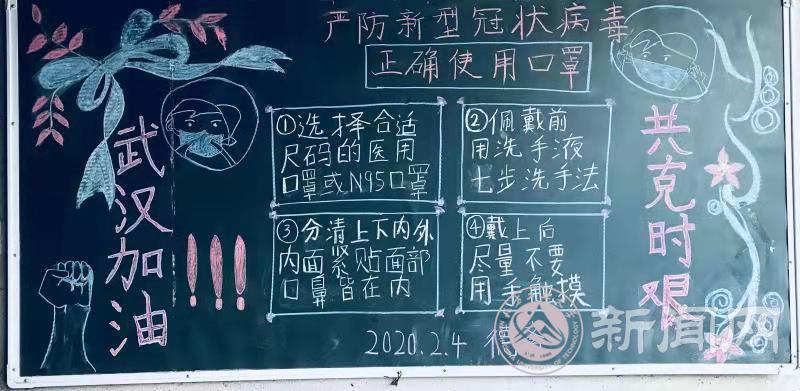 严防新型冠状病毒
正确使用口罩
武汉加油!!!
①选择合适
尺码的医用
口罩或N95口罩
②佩戴前
用洗手液
七步洗手法
③分清上下内外
内面紧贴面部
口鼻皆在内
④戴上后
尽量不要
用手触摸
共克时艰
2020.2.4
新闻网